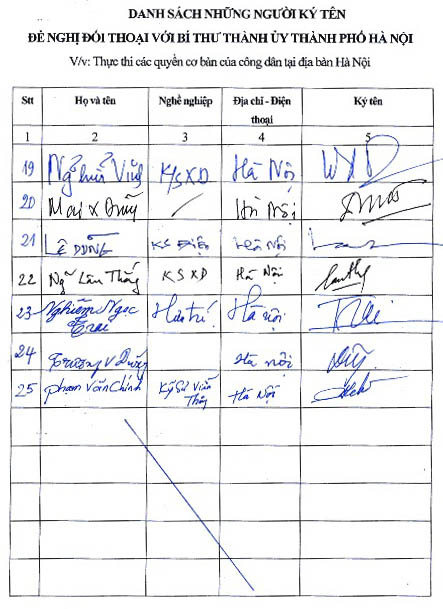 DANH SÁCH NHỮNG NGƯỜI KÝ TÊN
ĐỀ NGHỊ ĐỐI THOẠI VỚI BÍ THƯ THÀNH ỦY THÀNH PHỐ HÀ NỘI
V/v: Thực thi các quyền cơ bản của công dân tại địa bàn Hà Nội
Stt Họ và tên Nghề nghiệp Địa chỉ - Điện thoại Ký tên
1 2 3 4 5
19 K/S XD Hà Nội
20 Mai X Dũng Hà Nội
21 LÊ DŨNG KS Điện Hà Nội
22 Ngô Lâm Thắng KSXD Hà Nội
23 Nghiêm Ngọc Trai Hưu trí Hà nội
24 Trương V Dũng Hà nội
25 phạm Văn Chính Kỹ Sư Viễn Thông Hà Nội